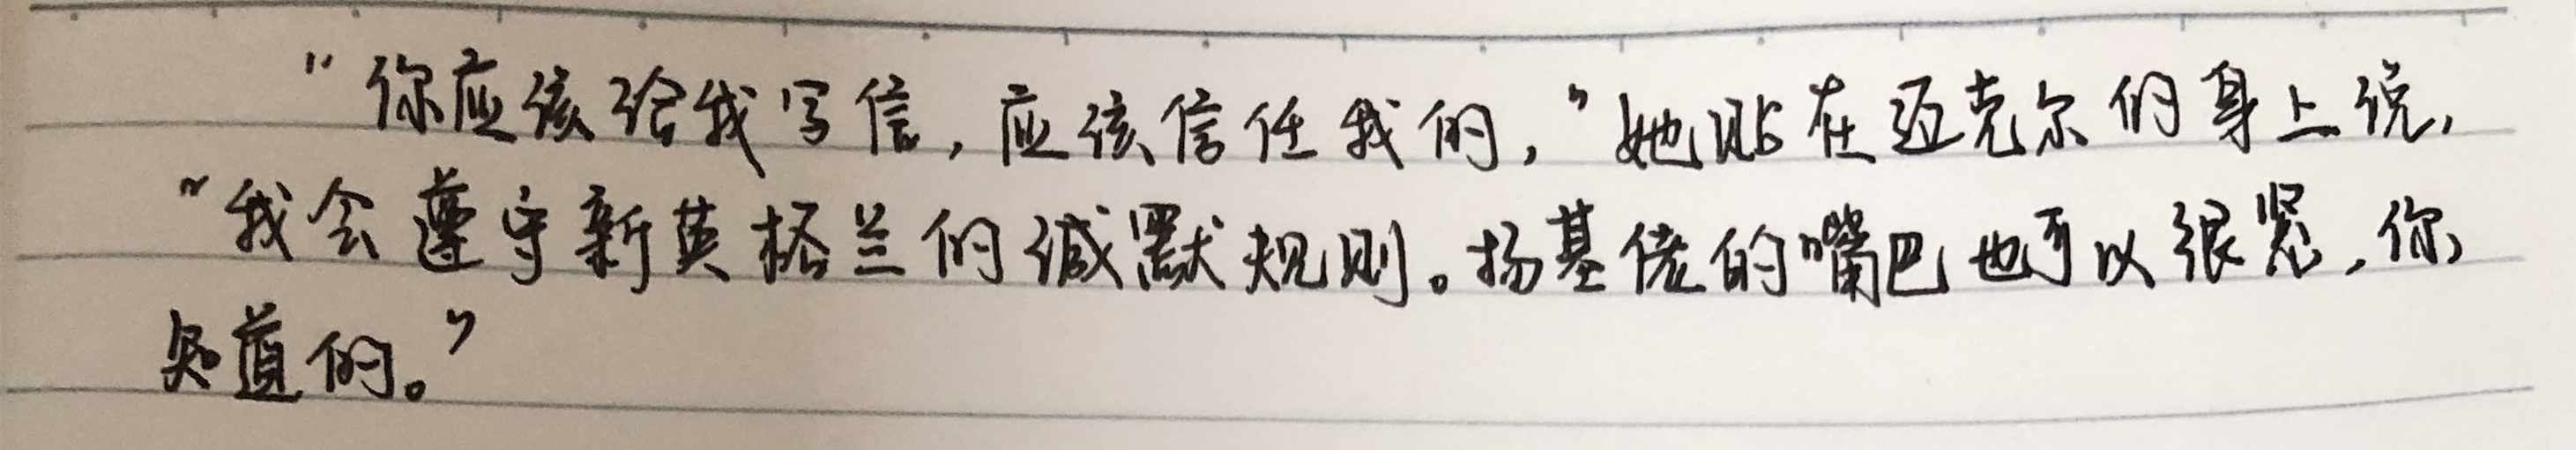 “你应该给我写信，应该信任我的，”她贴在迈克尔的身上说，
“我会遵守新英格兰的缄默规则。扬基佬的嘴巴也可以很紧，你
知道的。”